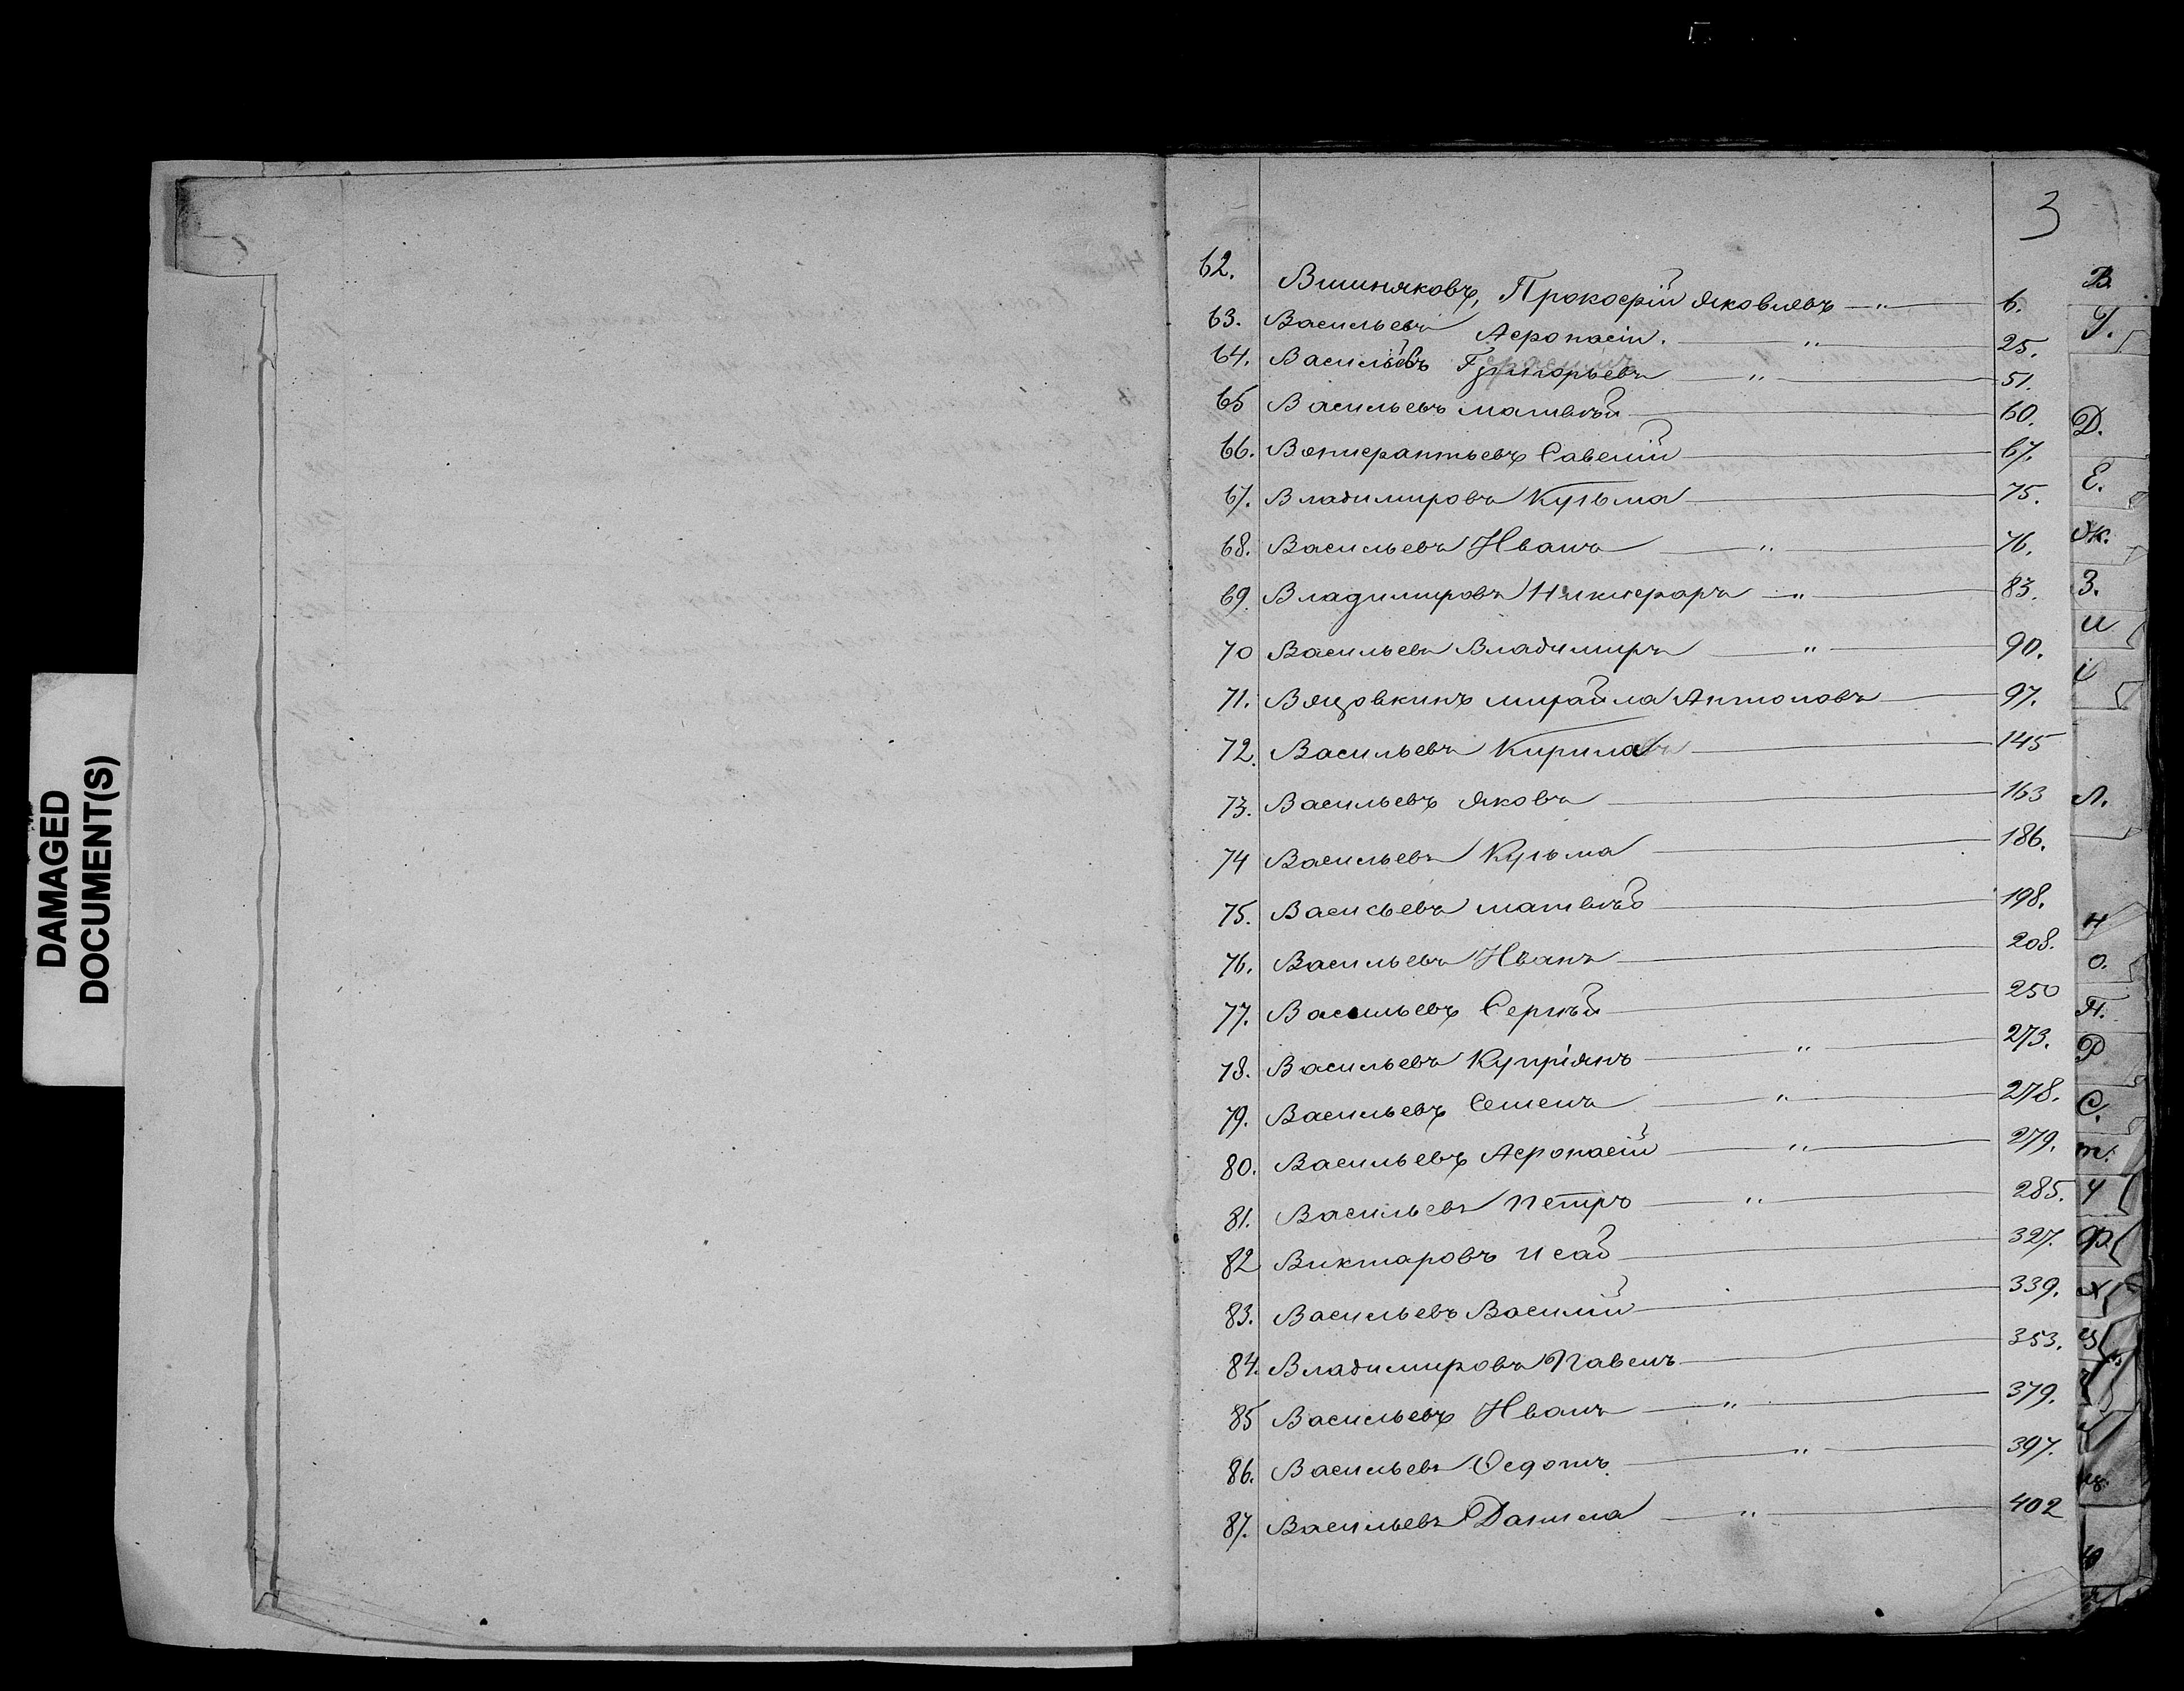 DAMAGED
DOCUMENT(S)
3
62. Вишняковъ, Прокофій Яковлевъ — " — 6.
63. Васильевъ Афонасій. — " — 25.
64. Васильевъ Григорьевъ — " — 51.
65 Васильевъ Матвѣй — 60.
66. Савелій — 67.
67. Владимировъ Кузьма — 75.
68. Васильевъ Иванъ — " — 76.
69. Владимировъ Никифоръ — " — 83.
70 Васильевъ Владимиръ — " — 90.
71. Антоновъ — 97.
72. Васильевъ Кирила — 145
73. Васильевъ Яковъ — 163
74 Васильевъ Кузьма — 186.
75. Васильевъ Матвѣй — 198.
76. Васильевъ Иванъ — 208.
77. Васильевъ Сергѣй — 250
78. Васильевъ Купріянъ — " — 273.
79. Васильевъ Семенъ — " — 278.
80. Васильевъ Афонасій — " — 279.
81. Васильевъ Петръ — " — 285.
82 Викторовъ Исай — 327.
83. Васильевъ Василій — 339.
84. Владимировъ Павелъ — 353.
85 Васильевъ Иванъ — " — 379.
86. Васильевъ Ѳедотъ. — " — 397.
87. Васильевъ Данила — " — 402
В.
Г.
Д.
Е.
Ж.
З.
И
І
Л.
Н
О.
П.
Р
С.
Т.
У
Ф.
Х
Ц